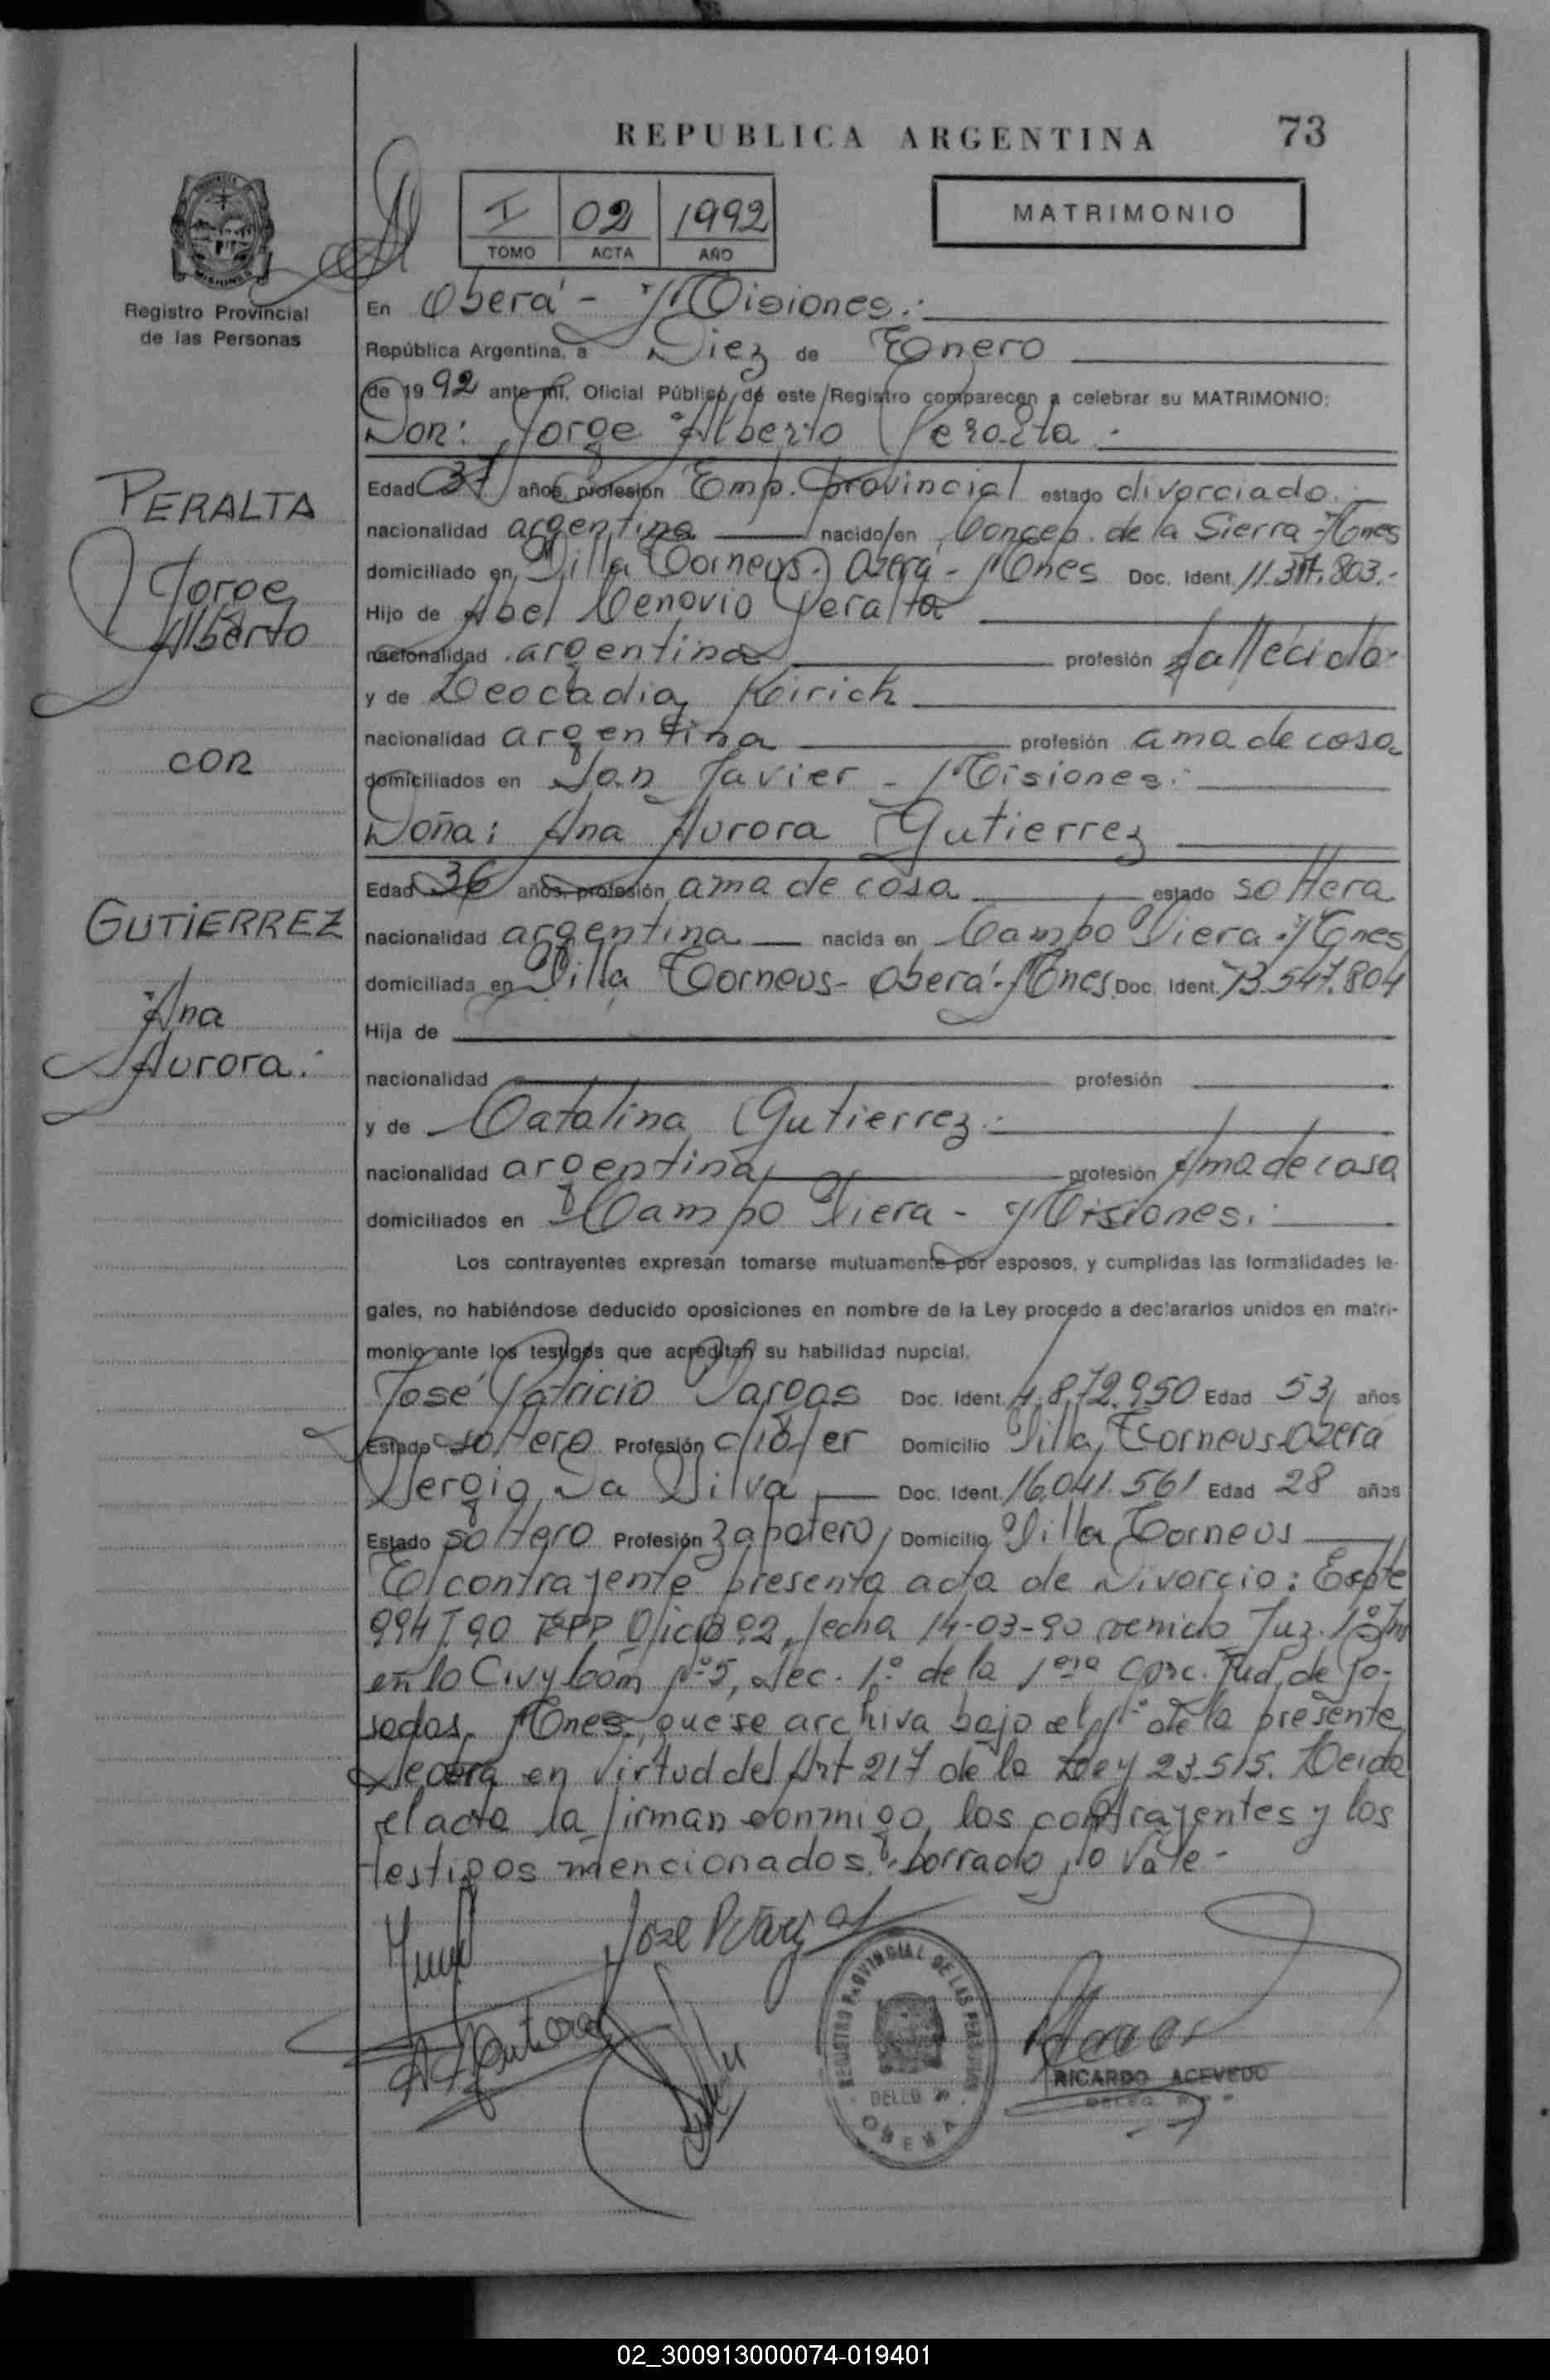 REPUBLICA ARGENTINA 73
I 02 1992
TOMO ACTA AÑO
MATRIMONIO
Registro Provincial
de las Personas
En Oberá - Misiones.
República Argentina, a Diez de Enero
de 1992 ante mí, Oficial Público de este Registro comparecen a celebrar su MATRIMONIO:
Don: Jorge Alberto Peralta
PERALTA
Jorge
Alberto
con
GUTIERREZ
Ana
Aurora.
Edad 37 años, profesión Emp. provincial estado divorciado.
nacionalidad argentina nacido en Concep. de la Sierra - Mnes
domiciliado en Villa Torneus - Oberá - Mnes Doc. Ident. 11. .803.-
Hijo de Abel Cenovio Peralta
nacionalidad argentina profesión fallecido
y de Leocadia Kirich
nacionalidad argentina profesión ama de casa
domiciliados en San Javier - Misiones.
Doña: Ana Aurora Gutierrez
Edad 36 años, profesión ama de casa estado soltera
nacionalidad argentina nacida en Campo Viera - Mnes
domiciliada en Villa Torneus - Oberá - Mnes Doc. Ident. 13.547.804
Hija de
nacionalidad profesión
y de Catalina Gutierrez.
nacionalidad argentina profesión Ama de casa
domiciliados en Campo Viera - Misiones.
Los contrayentes expresan tomarse mutuamente por esposos, y cumplidas las formalidades le-
gales, no habiéndose deducido oposiciones en nombre de la Ley procedo a declararlos unidos en matri-
monio ante los testigos que acreditan su habilidad nupcial.
José Patricio Vargas Doc. Ident. 4.872.950 Edad 53 años
Estado soltero Profesión chofer Domicilio Villa Torneus Oberá
Sergio Da Silva Doc. Ident. 16.041.561 Edad 28 años
Estado soltero Profesión zapatero Domicilio Villa Torneus
El contrayente presenta acta de Divorcio: Expte
994 90 fecha 14-03-90 venido Juz. 1º
en lo Civ y Com Nº 5, Sec. 1º de la 1era Circ. Jud. de Po-
sadas. Mnes. que se archiva bajo el Nº de la presente
en virtud del Art 217 de la Ley 23.515. Leida
el acta la firman conmigo los contrayentes y los
testigos mencionados. borrado Vale-
REGISTRO PROVINCIAL DE LAS PERSONAS
DELEG.
OBERA
RICARDO ACEVEDO
02_300913000074-019401